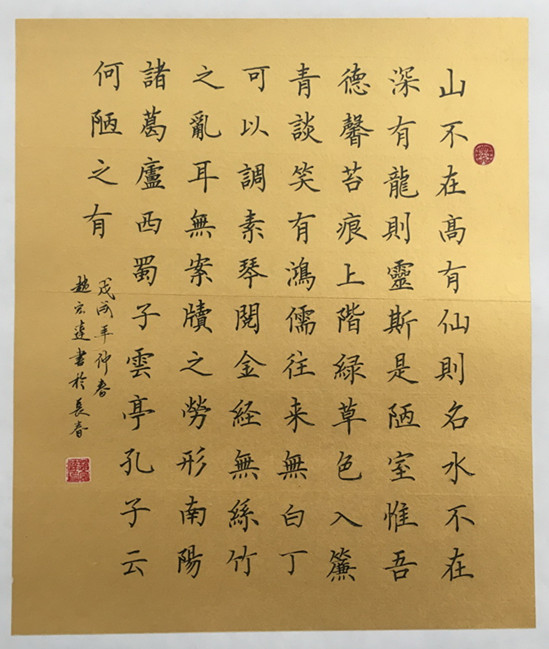 山不在高有仙則名水不在
深有龍則靈斯是陋室惟吾
德馨苔痕上階緑草色入簾
青談笑有鴻儒往来無白丁
可以調素琴閲金経無絲竹
之亂耳無案牘之勞形南陽
諸葛廬西蜀子雲亭孔子云
何陋之有
戊戌年仲春
趙宏達書於長春